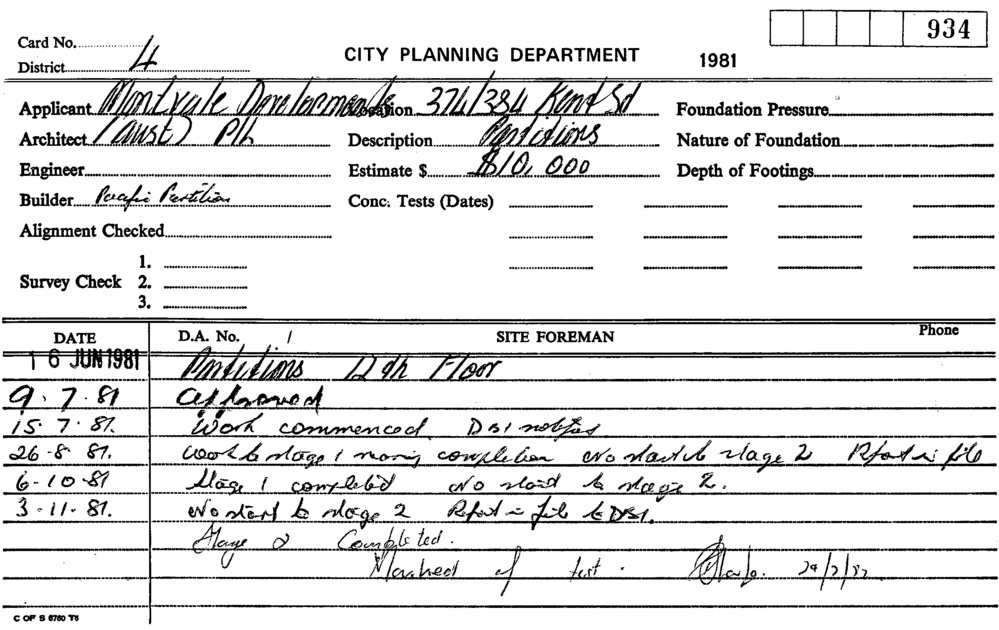 934
Card No.
CITY PLANNING DEPARTMENT 1981
District 4
Applicant Montvale Developments Location 374/384 Kent St Foundation Pressure
Architect (Aust) P/L Description Partitions Nature of Foundation
Engineer Estimate $ $10,000 Depth of Footings
Builder Pacific Partition Conc. Tests (Dates)
Alignment Checked
1.
Survey Check 2.
3.
DATE D.A. No. / SITE FOREMAN Phone
16 JUN 1981 Partitions 12th Floor
9.7.81 Approved
15.7.81. Work commenced. DBI notified
26-8-81. Work to stage 1 nearing completion No start to stage 2 Report in file
6-10-81 Stage 1 completed No start to stage 2.
3-11-81. No start to stage 2 Report in file to DBI.
Stage 2 Completed.
Marked of list.
C OF S 6760 T6